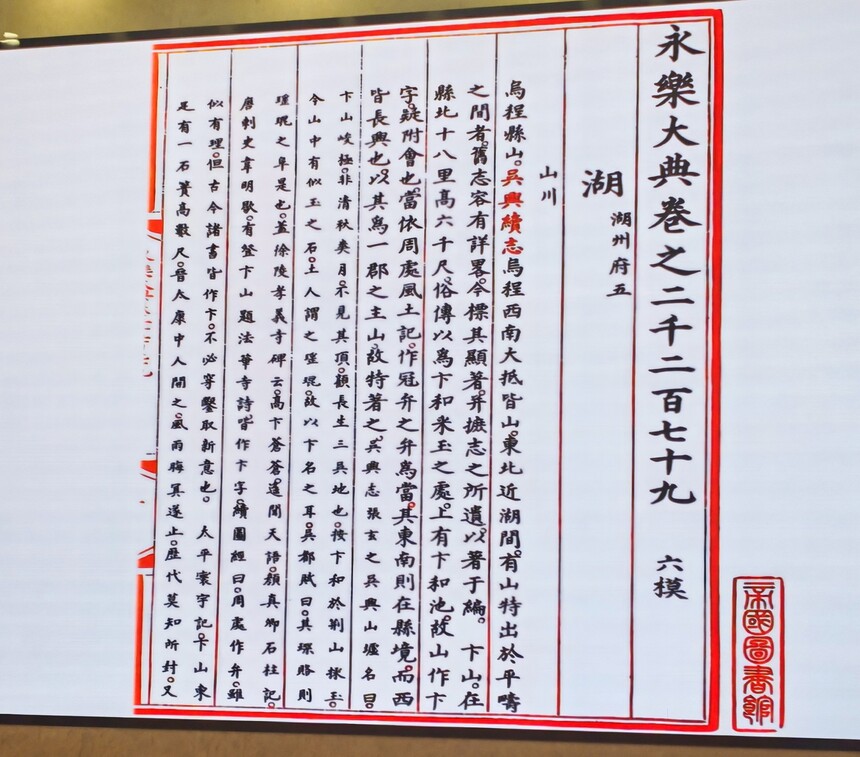 永樂大典卷之二千二百七十九 六模
湖 湖州府五
山川
烏程縣山。吳興續志烏程西南大抵皆山。東北近湖間。有山特出於平疇
之間者。舊志容有詳畧。今標其顯著。并摭志之所遺。以著于編。 卞山。在
縣北十八里高六千尺。俗傳以為卞和采玉之處。上有卞和池。故山作卞
字。疑附會也。當依周處風土記。作冠弁之弁為當。其東南則在縣境。而西
皆長興也。以其為一郡之主山。故特著之。吳興志張玄之吳興山墟名曰。
卞山峻極。非清秋爽月。不見其頂。顧長生三吳地也。按卞和於荆山採玉。
今山中有似玉之石。土人謂之瑶琨。故以卞名之耳。吳都賦曰。其琛賂則
瑶琨之阜是也。蓋徐陵孝義寺碑云。高卞蒼蒼。遥聞天語。顔真卿石柱記。
唐刺史韋明敭。有登卞山題法華寺詩。皆作卞字。續圖經曰。周處作弁。雖
似有理。但古今諸書皆作卞。不必穿鑿取新意也。 太平寰宇記。卞山東
足有一石簣高數尺。晉太康中人開之。風雨晦冥遂止。歴代莫知所封。又
帝國圖書館